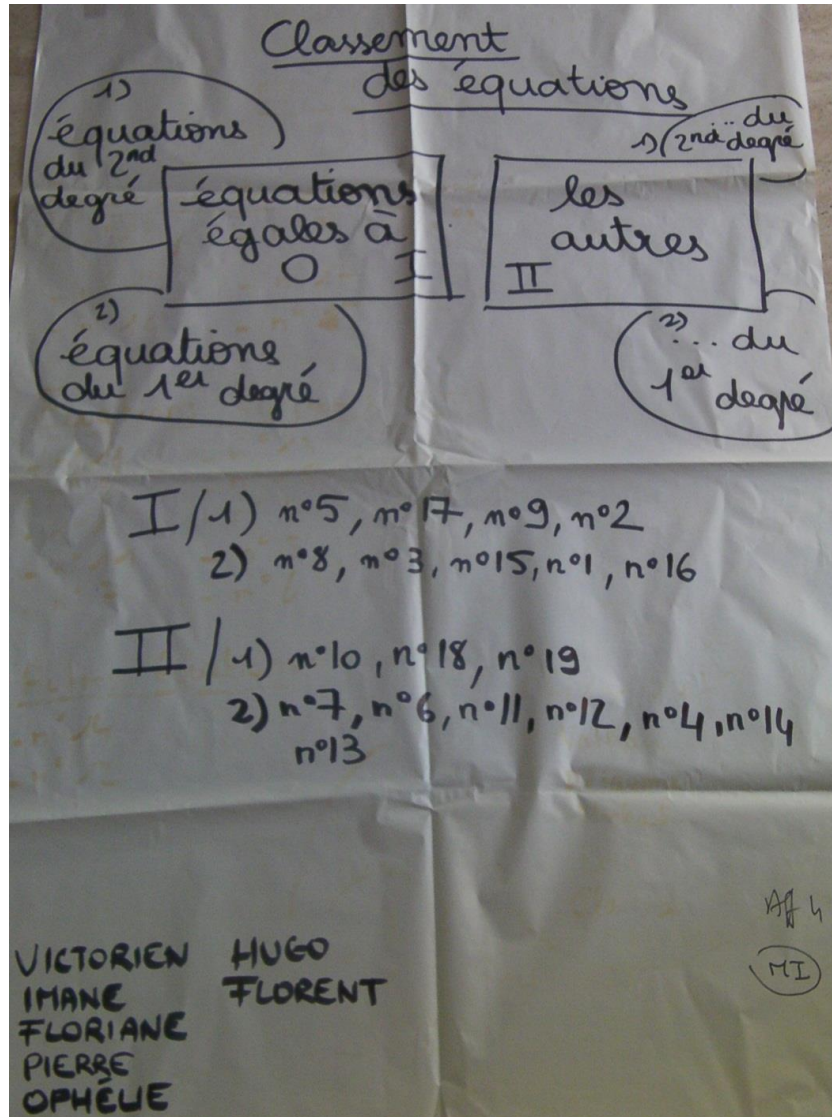 Classement
des équations
1)
équations
du 2nd
degré
équations
égales à
0 I
les
autres
II
1) ... du
2nd degré
2)
équations
du 1er degré
2)
... du
1er degré
I/1) n°5, n°17, n°9, n°2
2) n°8, n°3, n°15, n°1, n°16
II/1) n°10, n°18, n°19
2) n°7, n°6, n°11, n°12, n°4, n°14
n°13
Aff 4
MI
VICTORIEN HUGO
IMANE FLORENT
FLORIANE
PIERRE
OPHÉLIE